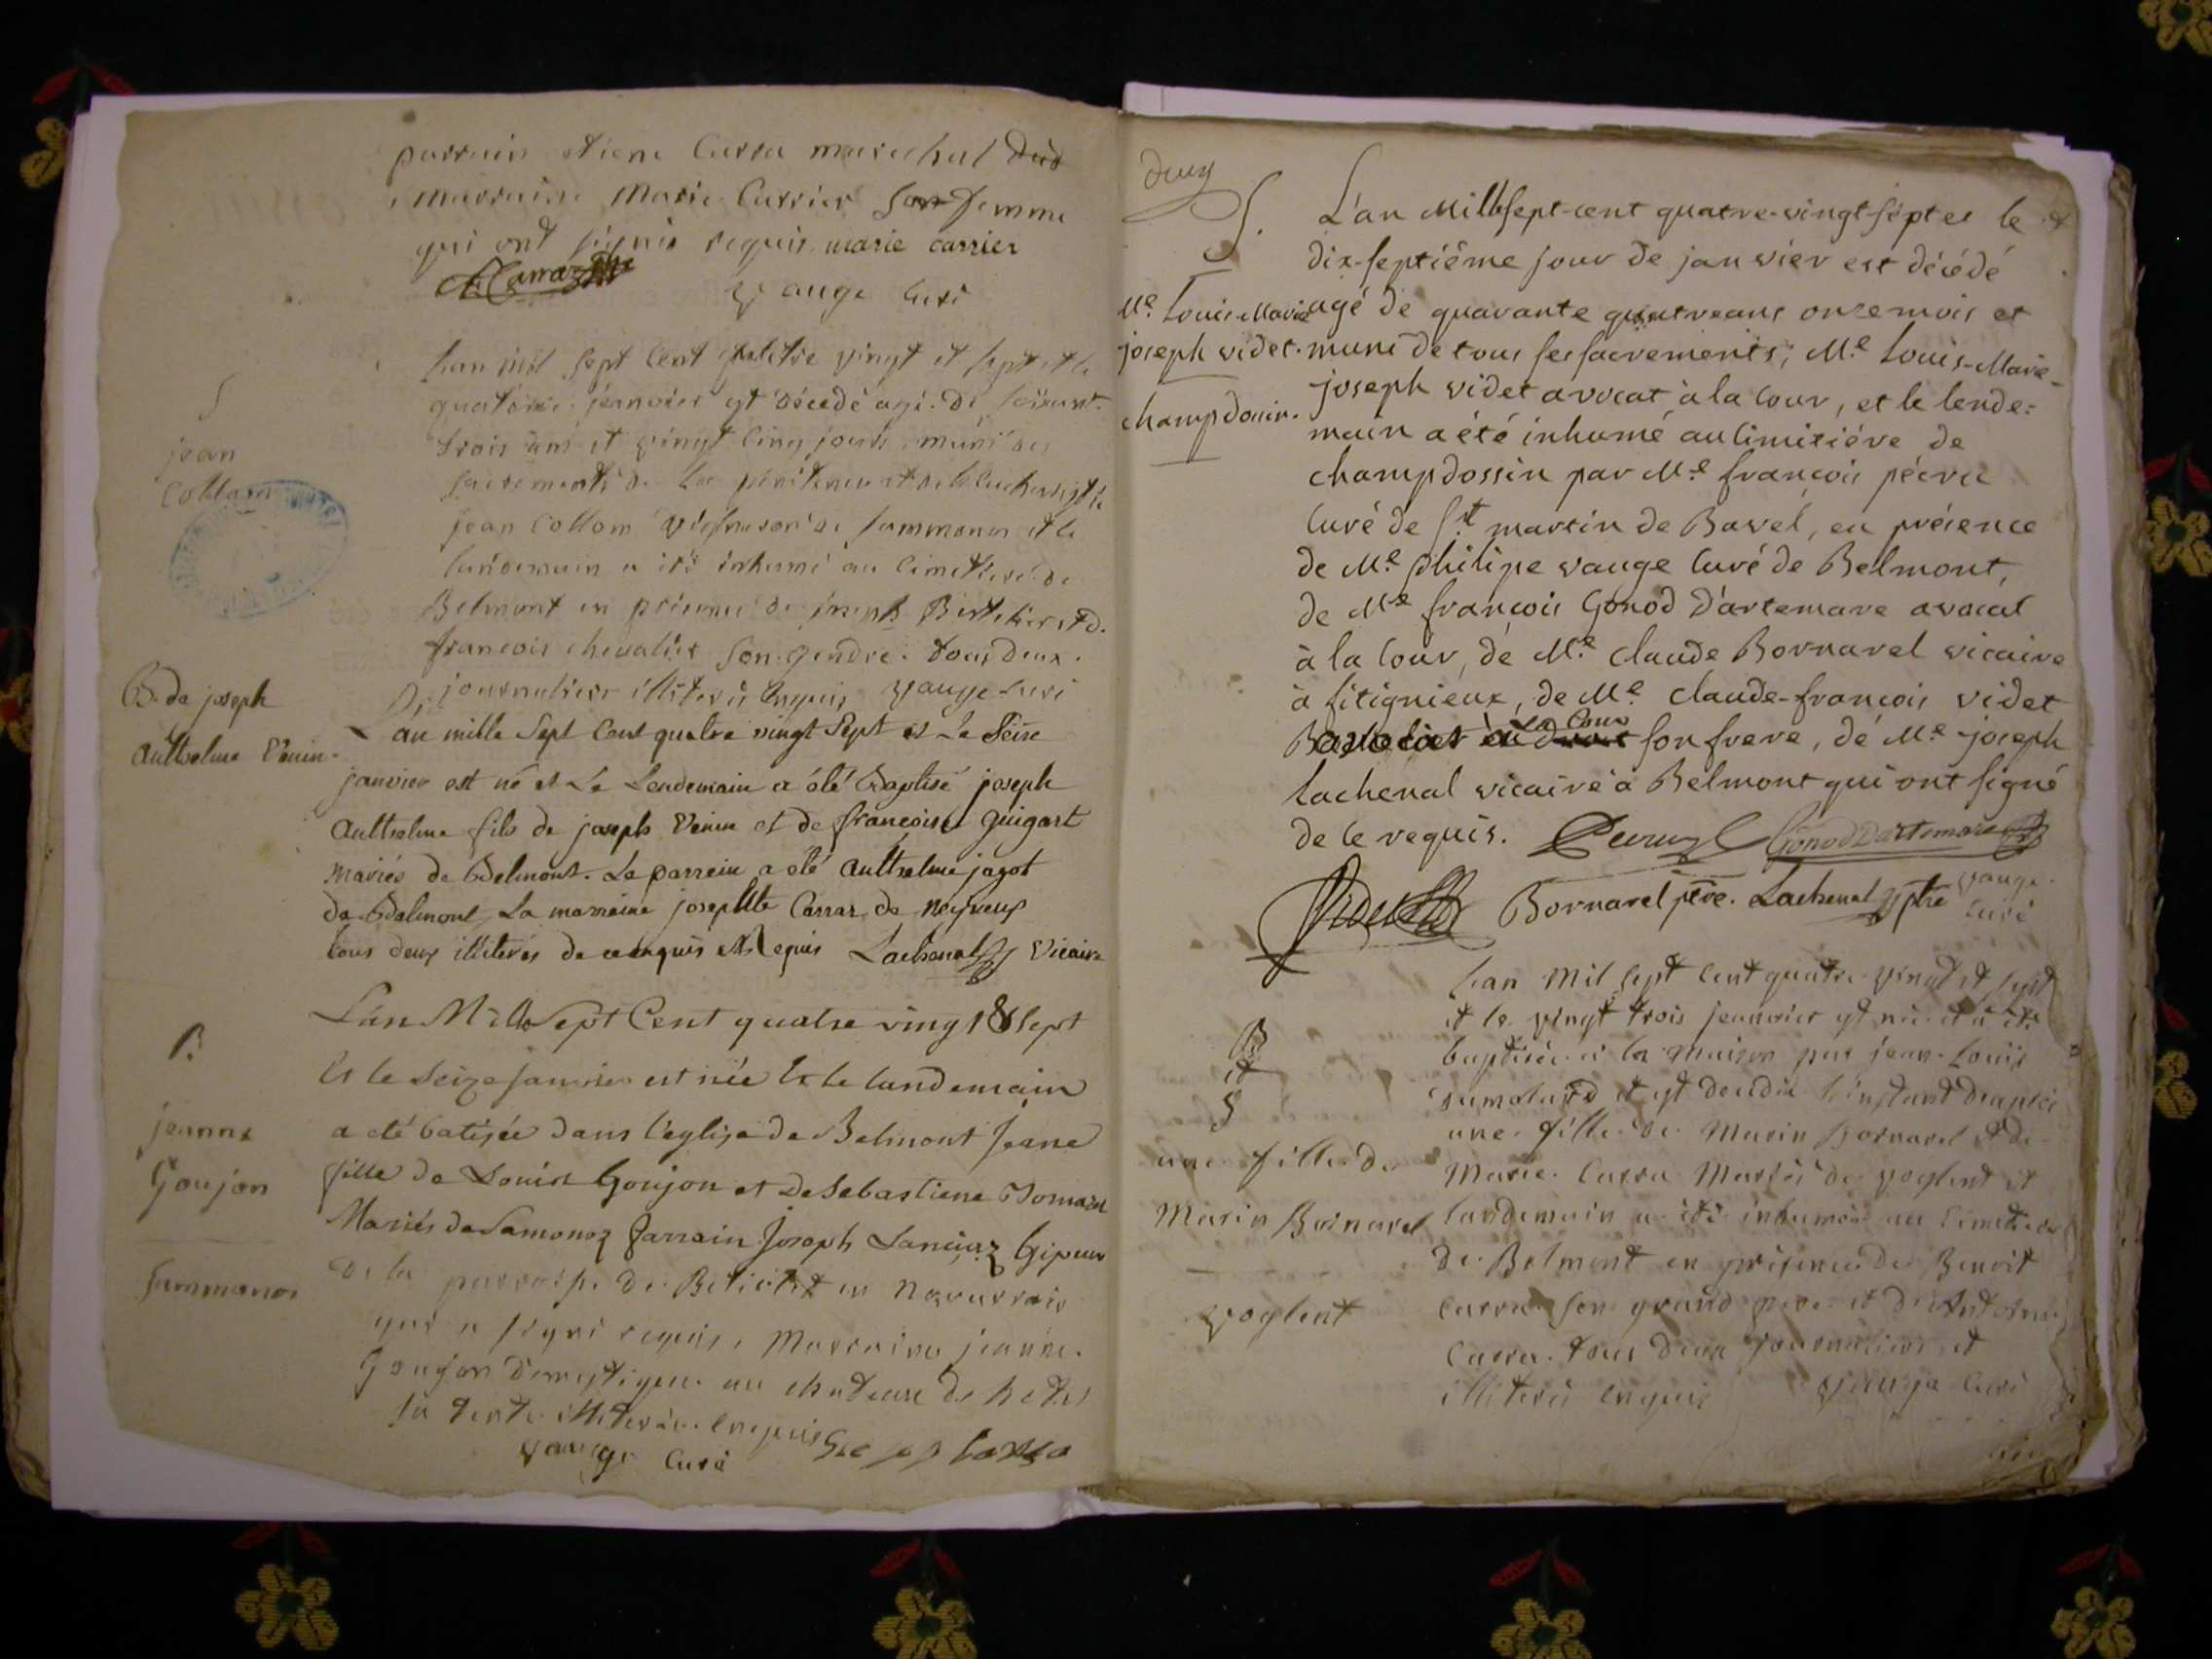 parrain etiene Carra marechal
marraine Marie Carrier son femme
qui ont signés requis marie carrier
vauge Curé
S
jean
Collom
Lan mil sept Cent quatre vingt et sept et le
quatorze janvier yt décédé agé de soixante
trois ans et vingt cinq jours muni des
sacrements de la pénitence et de
jean Collom vigneron de sammonor et le
landemain a été inhumé au cimetiere de
Belmont en présence de joseph Berthelier et de
francois chevalier son gendre tous deux
journaliers illiterés enquis vauge curé
B. de joseph
Aulthelme Venin
L'an mille Sept Cent quatre vingt Sept et Le Seize
janvier est né et Le Lendemain a été Baptisé joseph
Aulthelme fils de joseph Venin et de francoise guigart
mariés de Belmont. Le parrein a été Aulthelme jagot
de Belmont La marreine josephte Carraz de neyreux
tous deux illiterés de ce enquis et Requis Lachenal Vicaire
B.
jeanne
Goujon
Sammonor
L'an Mille Sept Cent quatre vingt & Sept
Et le Seize Janvier est née Et le landemain
a été batisée dans l'eglise de Belmont Jeane
fille de Louis Goujon et de Sebastiene Bornard
Mariés de Samonoz Parrain Joseph Lanciaz Gipeur
de la parroisse de
qui a signé requis, Marraine jeanne
Goujon Domestique au chateau de
sa tente illiterée enquis
vauge Curé
deux
S.
Me. Louis-Marie
joseph videt.
champdossin.
L'an Mille sept-cent quatre-vingt-sept et le
dix-septiéme jour de janvier est décédé
agé de quarante quatre ans onze mois et
muni de tous ses sacrements, Me. Louis-Marie-
joseph videt avocat à la Cour, et le lende-
main a été inhumé au cimitiére de
champdossin par Me. françois pécru
Curé de St. martin de Bavel, en présence
de Me. philipe vauge Curé de Belmont,
de Me. françois Gonod D'artemare avocat
à la Cour, de Me. claude Bornarel vicaire
à fitignieux, de Me. claude-françois videt
Avocat à la Cour son frere, de Me. joseph
Lachenal vicaire à Belmont qui ont signé
de ce requis. Gonod Dartemare
Videt Bornarel ptre. Lachenal ptre vauge
curé
B
et
S
une fille de
Marin Bornarel
voglent
Lan Mil sept Cent quatre vingt et sept
et le vingt trois jeanvier yt née et a été
baptisée à la maison par jean Louis
et yt décédée l'instant d'aprés
une fille de Marin Bornarel et de
Marie Carra Mariés de voglent et
landemain a été inhumée au Cimetiere
de Belmont en présence de Benoit
Carra son grand pere et d'Antoine
Carra tous deux journaliers et
illiterés enquis vauge Curé